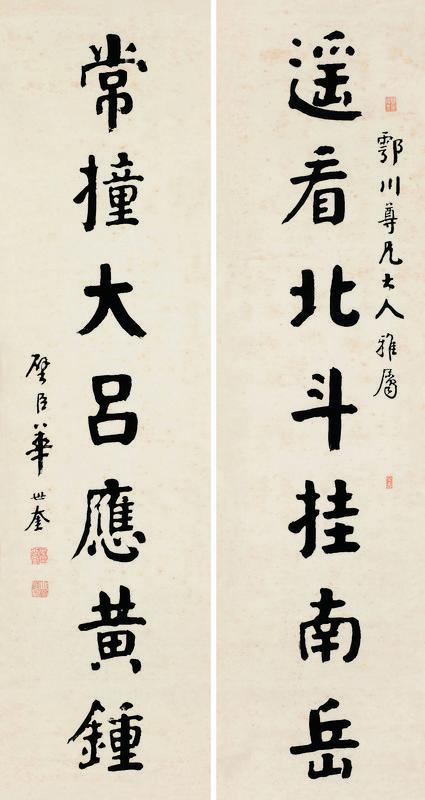 鄂川尊兄大人雅屬
遥看北斗挂南岳
常撞大吕應黄鍾
璧臣華世奎